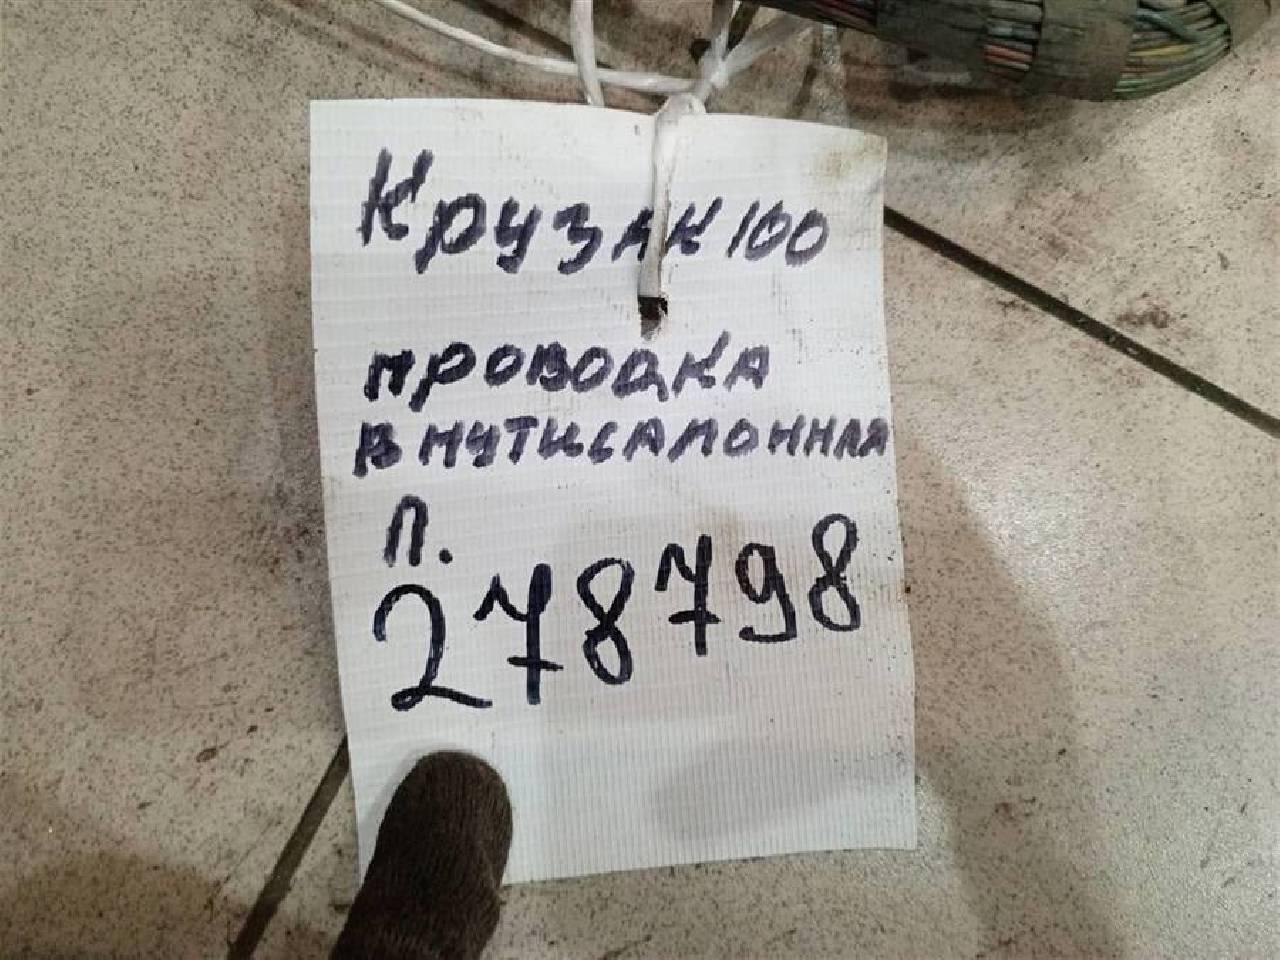 Крузак 100
проводка
внутисалонная
П.
278798